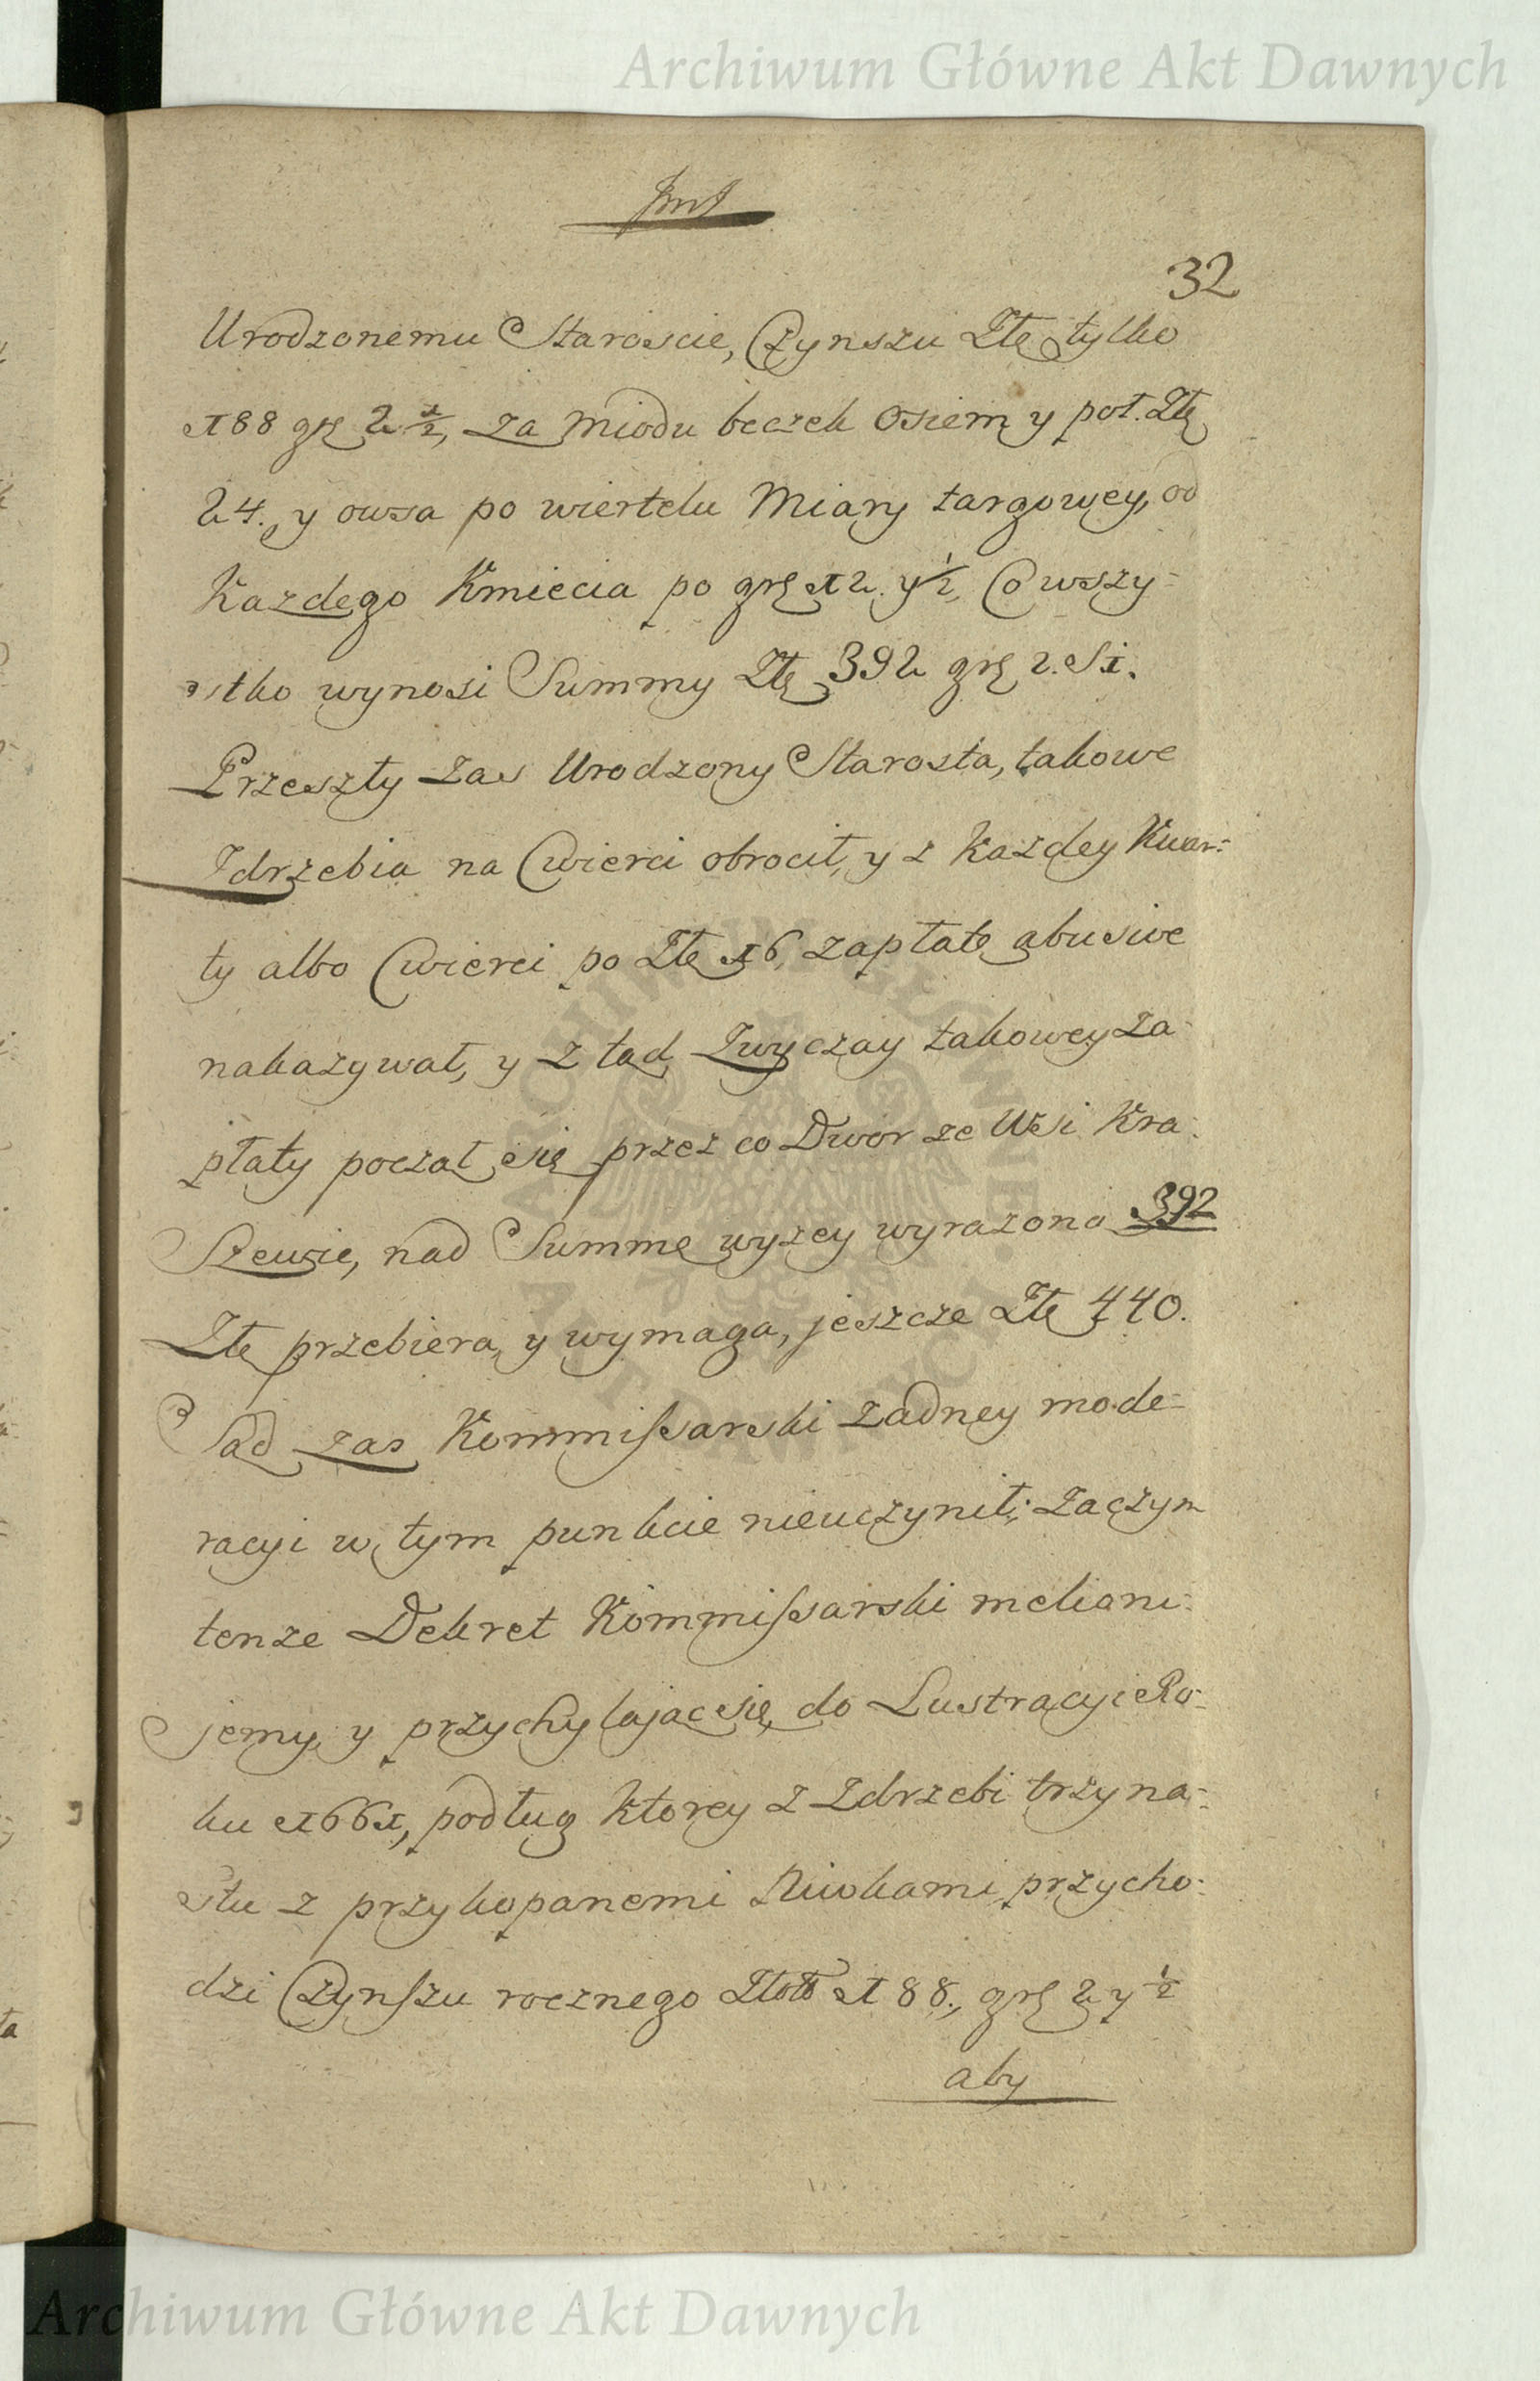 Archiwum Główne Akt Dawnych
32
Urodzonemu Staroscie, Czynszu Złt tylko
188 grę 2 1/2, za miodu beczek Osiem y poł. Złt
24. y owsa po wiertelu Miary targowey, od
Kazdego Kmiecia po grę 12. y 1/2, Co wszy-
stko wynosi Summy Złt 392 grę 2. S 1.
Przeszły zas Urodzony Starosta, takowe
Zdrzebia na Cwierci obrocił, y z Kazdey Kwar-
ty albo Cwierci po Złt 16, zapłatę abusive
nakazywał, y z tąd Zwyczay takowey za-
płaty począł się przez co Dwór ze Wsi Kra-
szewie, nad Summę wyzey wyrazoną 392
Złt przebiera, y wymaga, jeszcze Złt 440.
Sąd zas Kommissarski zadney mode-
racyi w tym punkcie nieuczynił; Zaczym
tenze Dekret Kommissarski meliory-
jemy, y przychylając się, do Lustracyi Ro-
ku 1661, podług ktorey z Zdrzebi trzyna-
stu z przykopanemi Niwkami przycho-
dzi Czynszu rocznego Złott 188., grę 2 y 1/2
aby
ARCHIWUM GŁÓWNE AKT DAWNYCH
Archiwum Główne Akt Dawnych